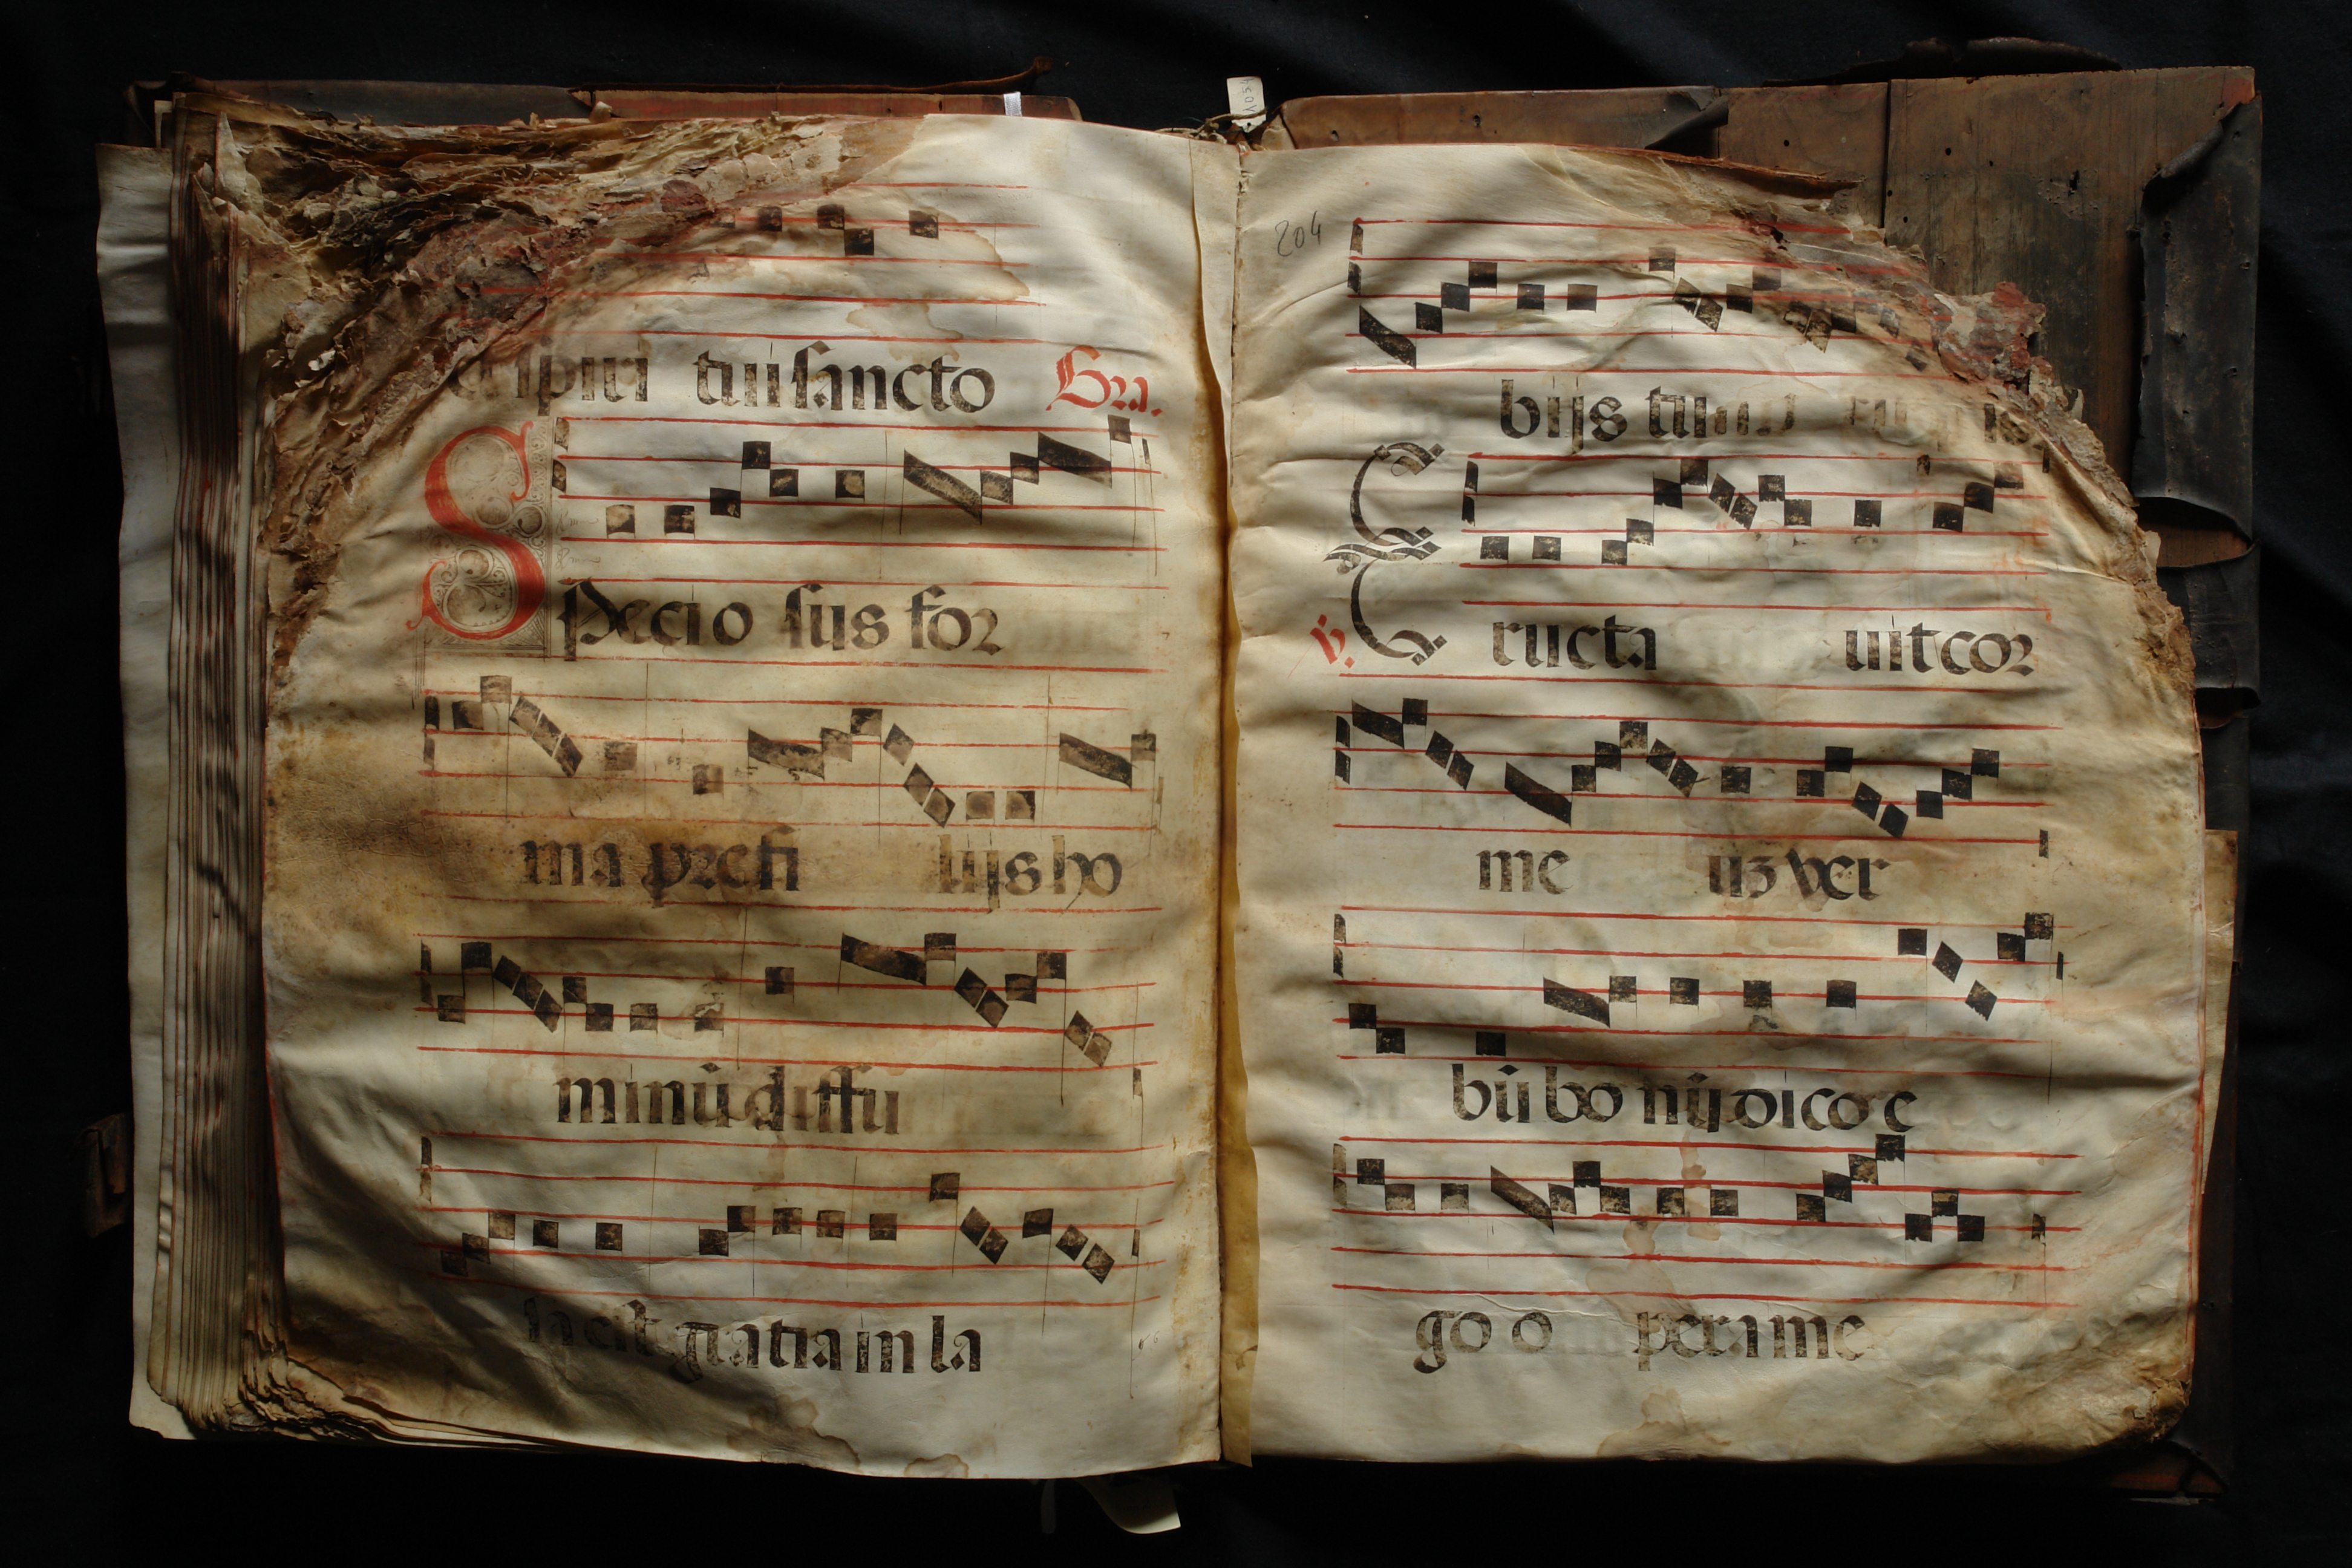 spiri tui sancto Gra.
Specio sus for
ma prefi lijs ho
minū diffu
sa est gratia in la
204
bijs tuis
v. Eructa uit cor
me uʒ ver
bū bo nū dico e
go o pera me